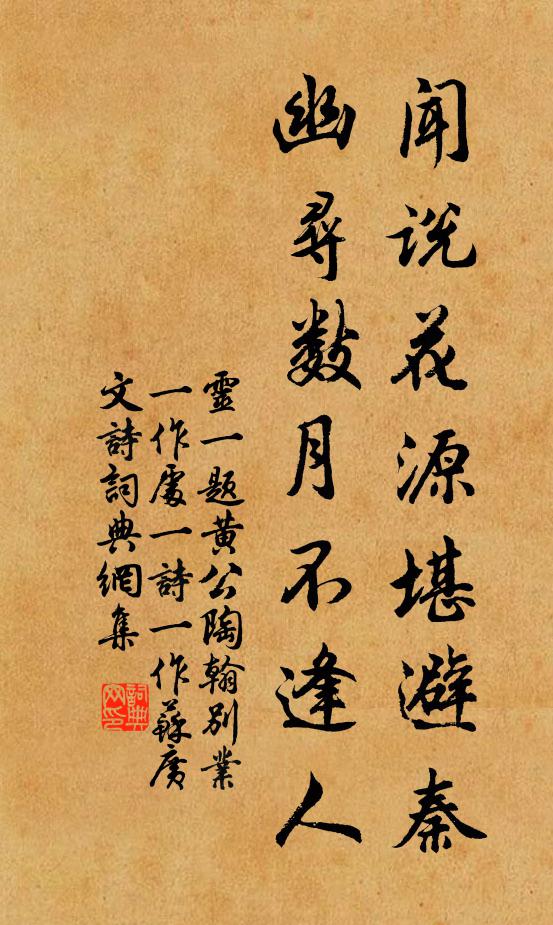 聞說花源堪避秦
幽尋數月不逢人
靈一題黃公陶翰別業
一作處一詩一作蘇廣
文詩詞典網集
詞典
网印